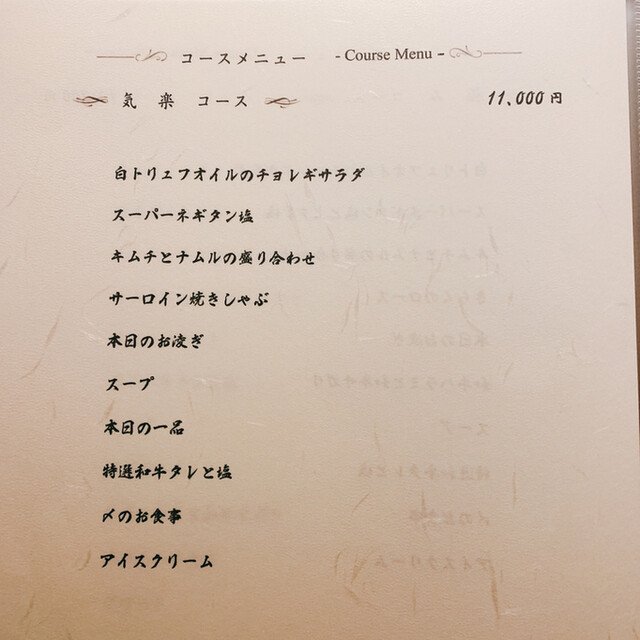 コースメニュー - Course Menu -
気楽 コース 11,000円
白トリュフオイルのチョレギサラダ
スーパーネギタン塩
キムチとナムルの盛り合わせ
サーロイン焼きしゃぶ
本日のお凌ぎ
スープ
本日の一品
特選和牛タレと塩
〆のお食事
アイスクリーム